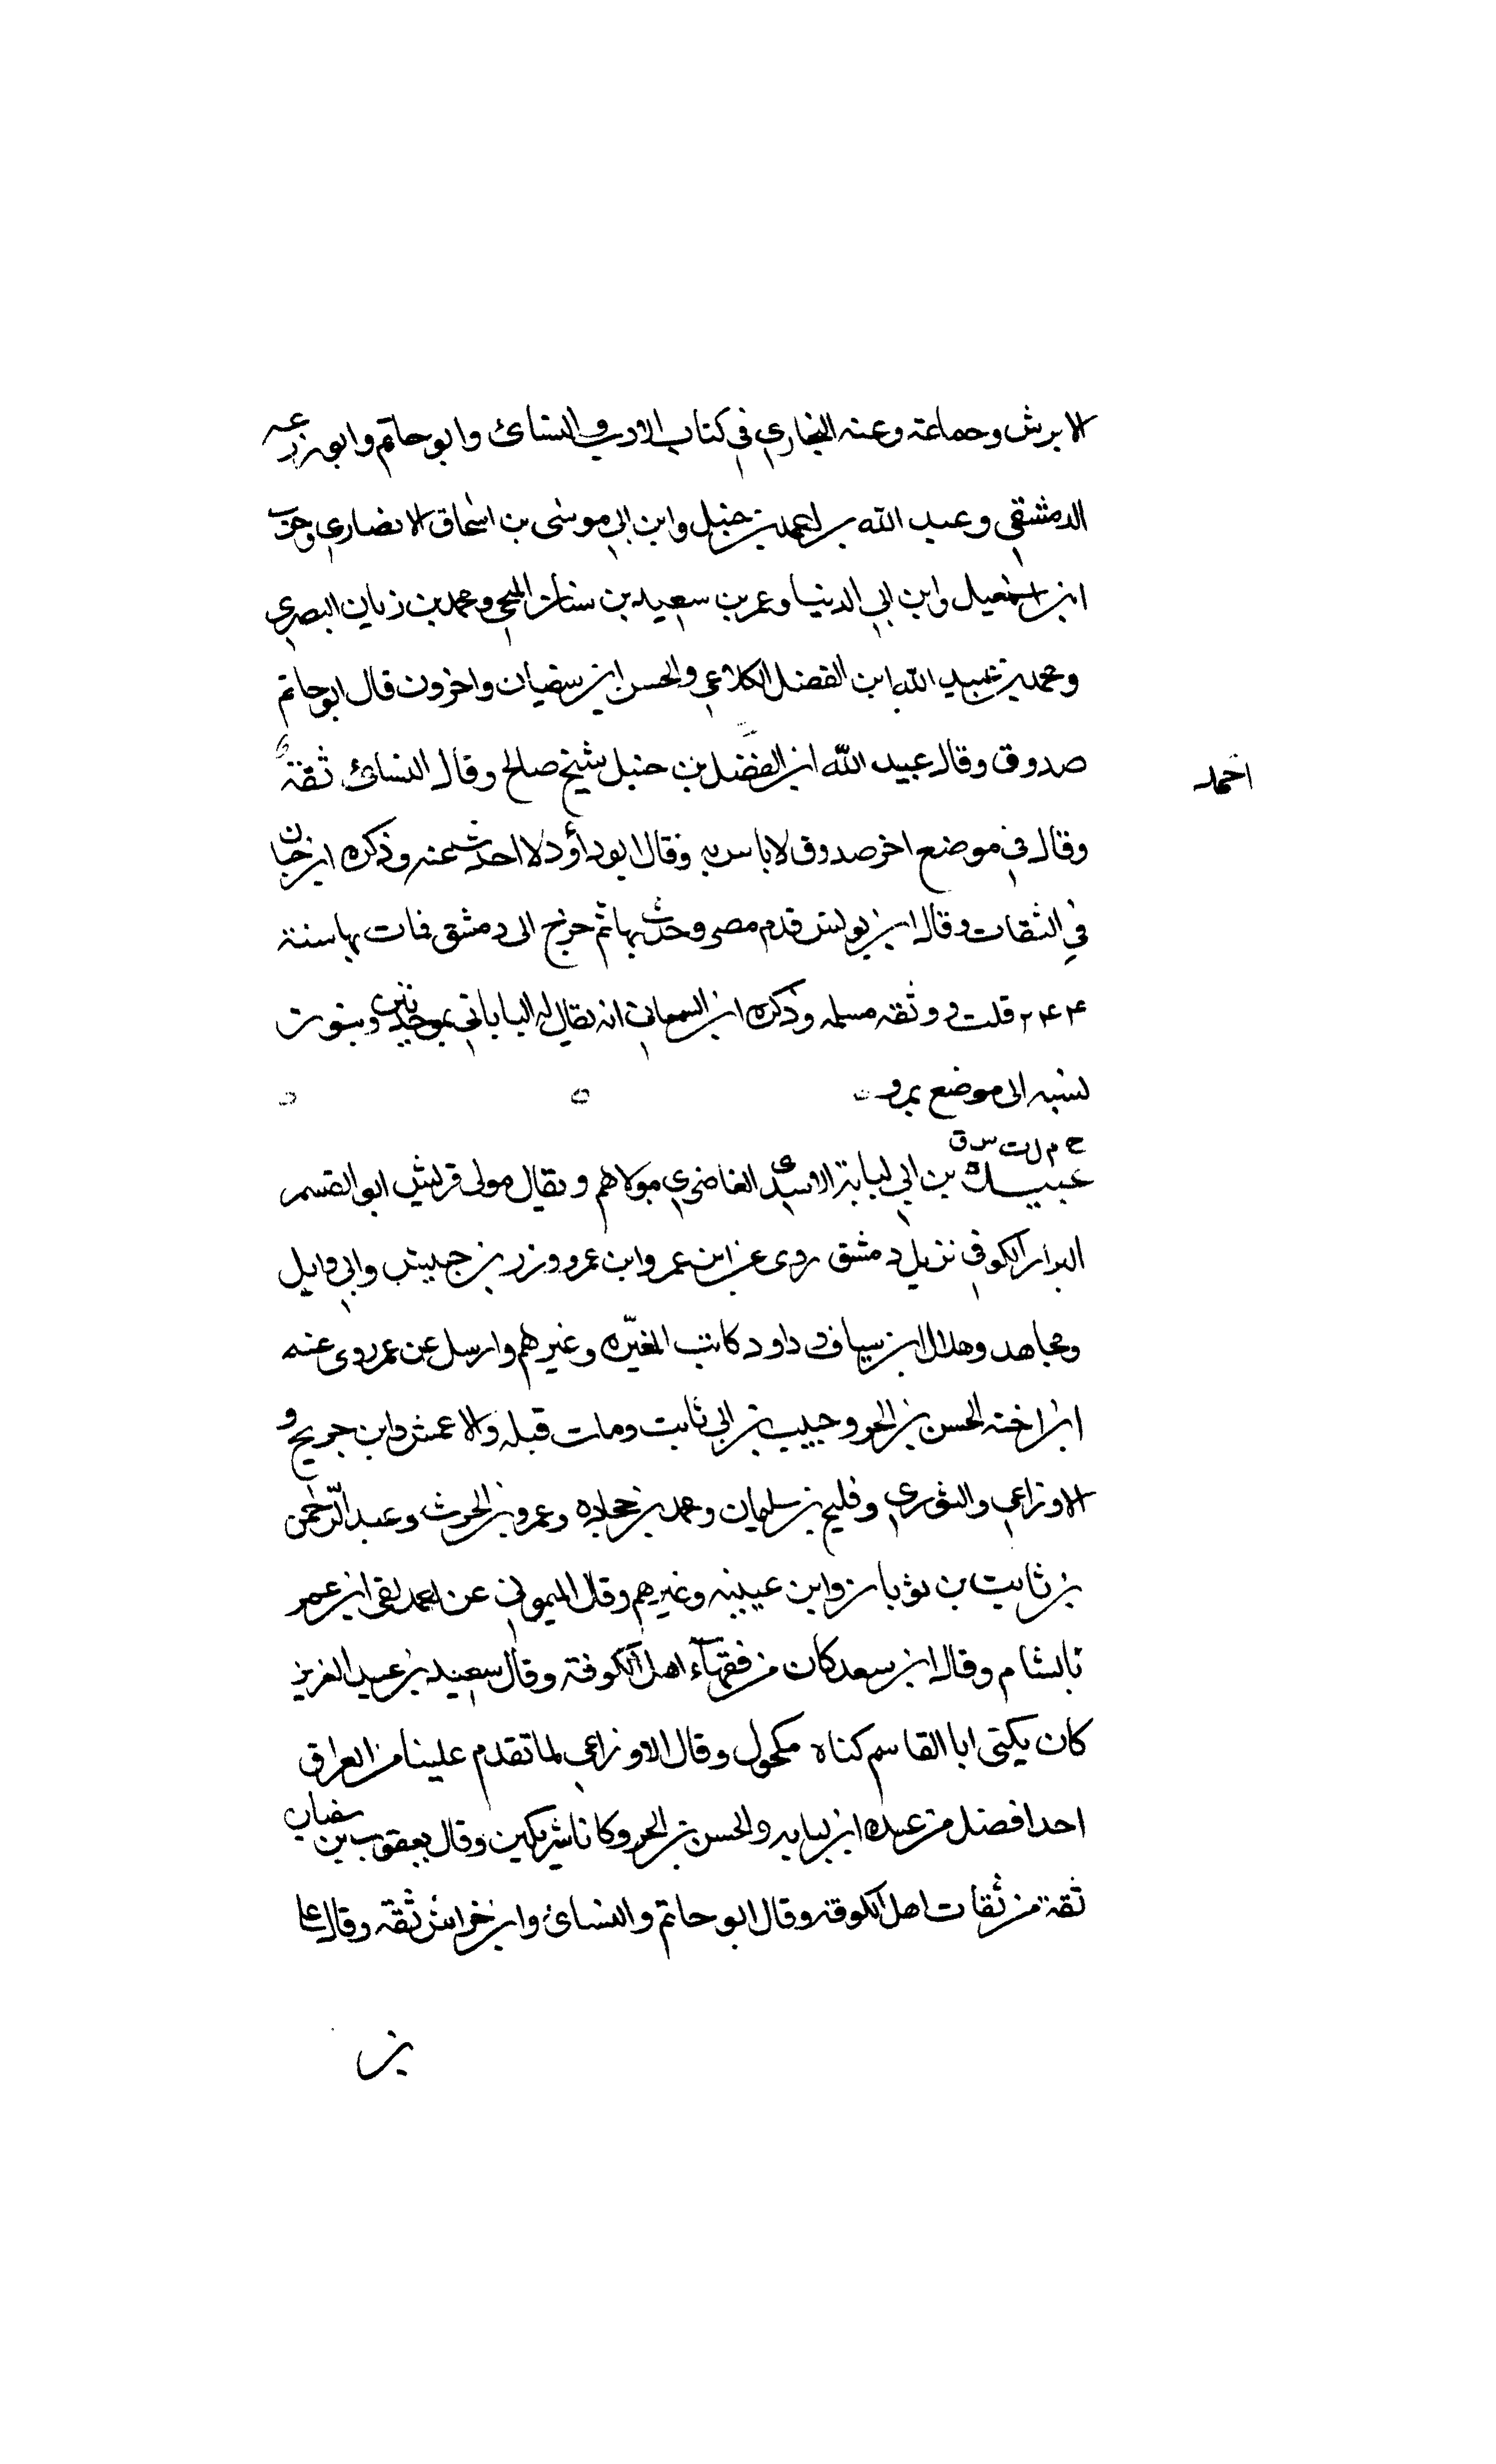 الابرش وجماعة وعنه البخاري في كتاب الادب والنسائ وابو حاتم وابو زرعه
الدمشقي وعبد الله بن احمد بن حنبل وابن ابي موسى بن اسحاق الانصاري وحرب
ابن اسمعيل وابن ابي الدنيا وعمر بن سعيد بن سنان المنبجي ومحمد بن زبان البصري
ومحمد بن عبيد الله ابن الفضل الكلاعي والحسن ابن سفيان واخرون قال ابو حاتم
صدوق وقال عبيد الله ابن الفضل بن حنبل شيخ صالح وقال النسائ ثقة
احمد
وقال في موضع اخر صدوق لا باس به وقال ابو داؤد لا احدث عنه وذكره ابن حبان
في الثقات وقال ابن يونس قدم مصر وحدث بها ثم خرج الى دمشق فمات بها سنة
۲۴۴ قلت ووثقه مسلمه وذكره ابن السمعاني انه يقال له الباباني بموحدتين وبنون
نسبه الى موضع بمرو
خ م ل ت س ق
عبدة بن ابي لبابة الاسدي الغاضري مولاهم ويقال مولى قريش ابو القسم
البزاز الكوفي نزيل دمشق روى عن ابن عمر وابن عمرو وزر بن حبيش وابي وايل
ومجاهد وهلال ابن يساف ووراد كاتب المغيره وغيرهم وارسل عن عمر روى عنه
ابن اخته الحسن بن الحر وحبيب بن ابي ثابت ومات قبله والاعمش وابن جريج و
الاوزاعي والثوري وفليح بن سليمان ومحمد بن جحاده وعمرو بن الحرث وعبد الرحمن
بن ثابت بن ثوبان وابن عيينه وغيرهم وقال الميموني عن احمد لقي ابن عمر
بالشام وقال ابن سعد كان من فقهآء اهل الكوفة وقال سعيد بن عبد العزيز
كان يكنى ابا القاسم كناه مكحول وقال الاوزاعي لما تقدم علينا من العراق
احد افضل من عبده ابن لبابه والحسن بن الحر وكانا شريكين وقال يعقوب بن سفيان
ثقة من ثقات اهل الكوفة وقال ابو حاتم والنسائ وابن خراش ثقة وقال علي
بن